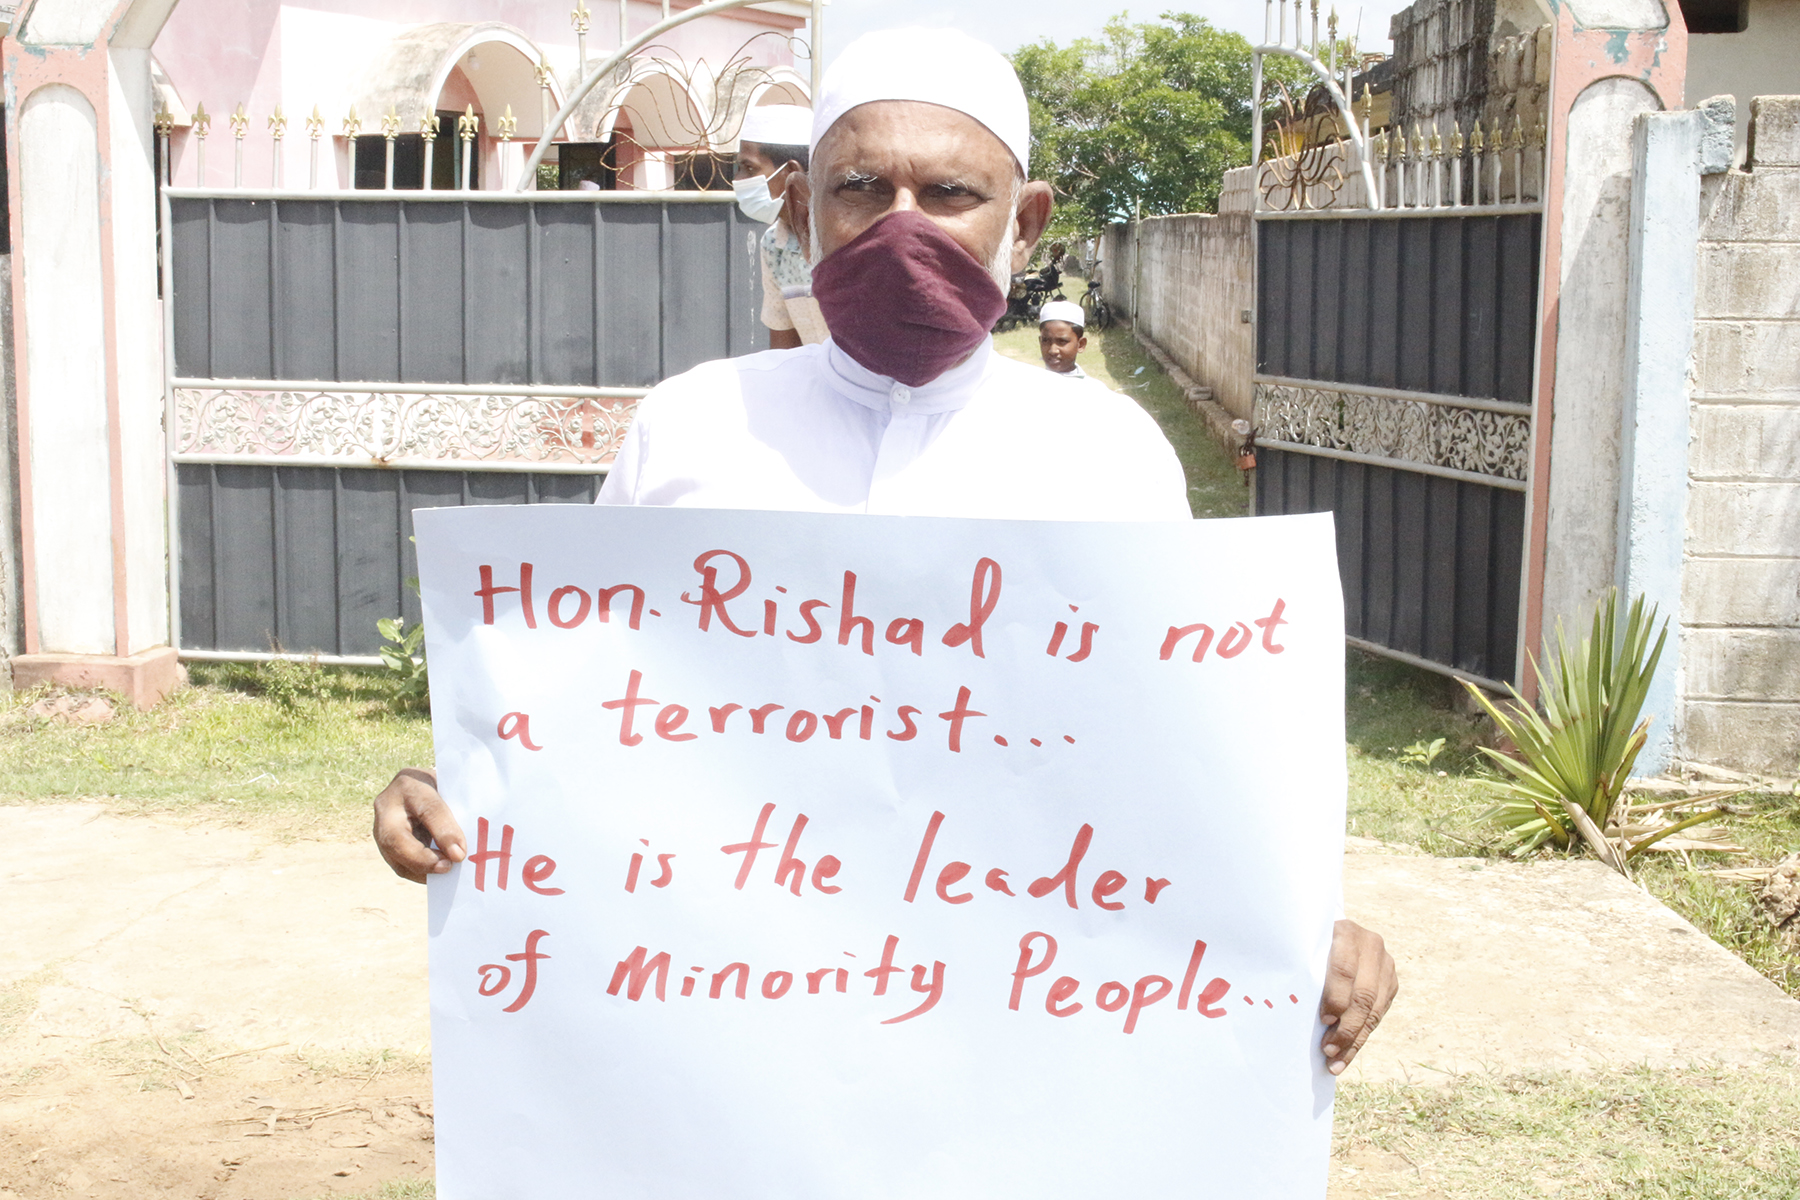 Hon. Rishad is not
a terrorist...
He is the leader
of Minority People...